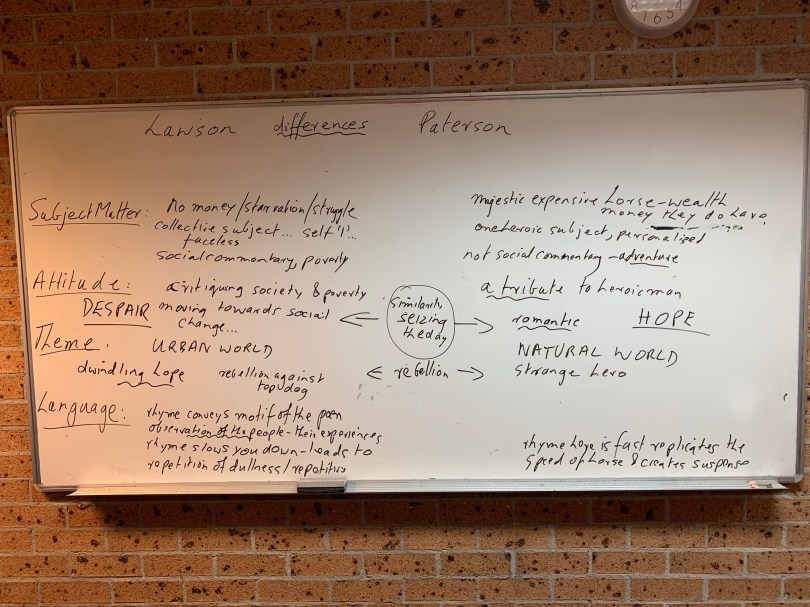 8 7 6 5 4
Lawson differences Paterson
Subject Matter: No money/starvation/struggle
collective subject... self 'I'..
faceless
social commentary, poverty
majestic expensive horse-wealth
money they do have
one heroic subject, personalized
not social commentary - adventure
Attitude: critiquing society, & poverty
DESPAIR moving towards social
change...
similarity
seizing
the day
a tribute to heroic man
romantic HOPE
Theme. URBAN WORLD
dwindling hope rebellion against
top dog
rebellion
NATURAL WORLD
strange hero
Language: rhyme conveys motif of the poem
observation of the people - their experiences
rhyme slows you down - leads to
repetition of dullness/
rhyme here is fast replicates the
speed of horse & creates suspense